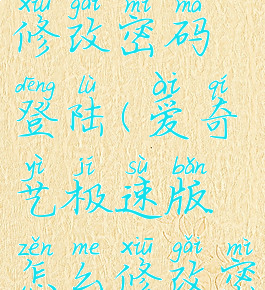 xiū gǎi mì mǎ
修改密码
dēng lù ài qí
登陆(爱奇
yì jí sù bǎn
艺极速版
zěn me xiū gǎi mì
怎么修改密